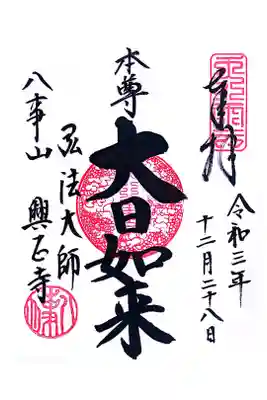 奉拝
令和三年
十二月二十八日
本尊
大日如来
弘法大師
八事山
興正寺